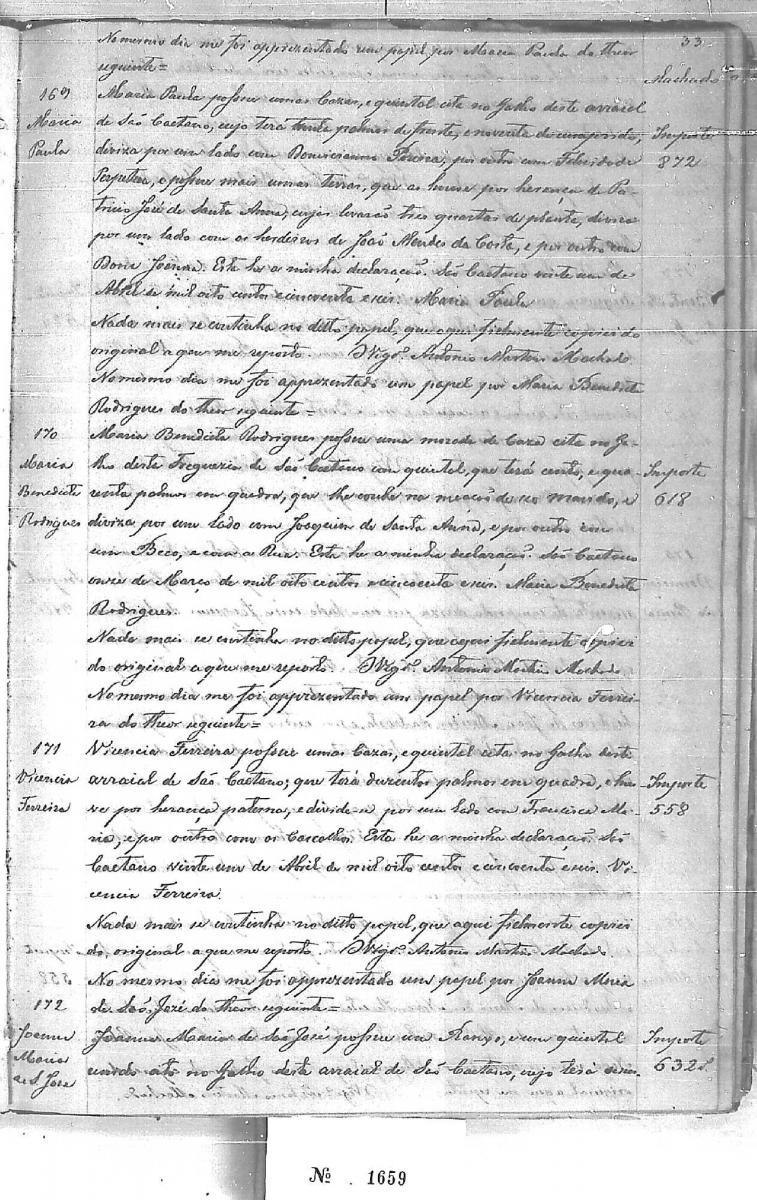 33
Machado
No mesmo dia me foi apprezentado um papel, por Maria Paula do theor
seguinte=
169
Maria
Paula
Maria Paula possue umas Cazas, e quintal cita no Galho deste arraial
de São Caetano, cujo terá trinta palmos de frente, e noventa de comprido,
diviza por um lado com Pereira, por outro com Felicidade
Perpetua, e possue mais umas terras, que as houve por herança de Pa-
tricio José de Santa Anna, cujas levarão tres quartas de plante, diviza
por um lado com os herdeiros de João Mendes da Costa, e por outro com
Dona Joanna. Esta he a minha declaração. São Caetano vinte um de
Abril de mil oito centos e cincoenta e seis. Maria Paula
Importe
872
Nada mais se continha no ditto papel, que aqui fielmente copiei do
original a que me reporto. O Vigrº. Antonio Martins Machado
No mesmo dia me foi apprezentado um papel por Maria Benedicta
Rodrigues do theor seguinte=
170
Maria
Benedicta
Rodrigues
Maria Benedicta Rodrigues possue uma morada de Caza cita no Ga-
lho desta Freguezia de São Caetano com quintal, que terá cento, e qua-
renta palmos em quadra, que lhe coube na meação de seo marido, e
diviza por um lado com Joaquim de Santa Anna, e por outro com
um Beco, e com a Rua. Esta he a minha declaração. São Caetano
onze de Março de mil oito centos e cincoenta e seis. Maria Benedicta
Rodrigues.
Importe
618
Nada mais se continha no ditto papel, que aqui fielmente copiei
do original a que me reporto. O Vigrº. Antonio Martins Machado
No mesmo dia me foi apprezentado um papel por Vicencia Ferrei-
ra do theor seguinte=
171
Vicencia
Ferreira
Vicencia Ferreira possue umas Cazas, e quintal cita no Galho deste
arraial de São Caetano; que terá duzentos palmos em quadra, e hou-
ve por herança paterna, e divide-se por um lado com Francisca Ma-
ria, e por outro com os Cascalhos. Esta he a minha declaração. São
Caetano vinte um de Abril de mil oito centos e cincoenta e seis. Vi-
cencia Ferreira.
Importe
558
Nada mais se continha no ditto papel, que aqui fielmente copiei
do original a que me reporto. O Vigrº. Antonio Martins Machado
No mesmo dia me foi apprezentado um papel por Joanna Maria
de São José do theor seguinte=
172
Joanna
Maria
de S. José
Joanna Maria de São José possue um Ranxo, e um quintal
unido cito no Galho deste arraial de São Caetano, cujo terá
Importe
632
Nº 1659